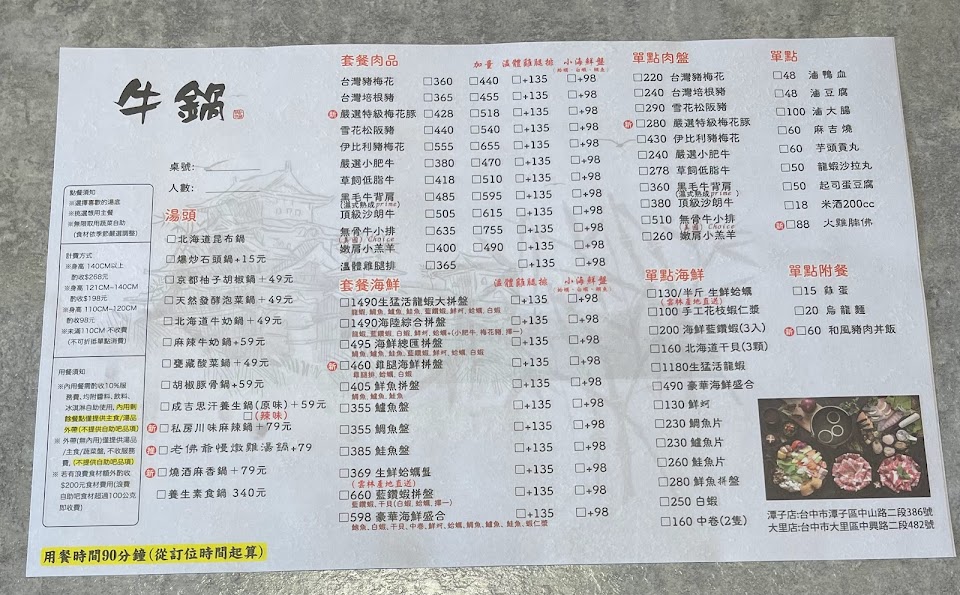 牛鍋
桌號:
人數:
點餐須知
※選擇喜歡的湯底
※挑選想用主餐
※無限取用蔬菜自助
(食材依季節嚴選調整)
計費方式
※身高 140CM以上
酌收$268元
※身高 121CM~140CM
酌收$198元
※身高 110CM~120CM
酌收98元
※未滿110CM 不收費
(不可折抵單點消費)
用餐須知
※內用餐需酌收10%服
務費,均附醬料、飲料、
冰淇淋自助使用,內用剩
餘餐點僅提供主食/湯品
外帶(不提供自助吧品項)
※ 外帶(無內用)僅提供湯品
/主食/蔬菜盤,不收服務
費,(不提供自助吧品項)
※ 若有浪費食材額外酌收
$200元食材費用(浪費
自助吧食材超過100公克
即收費)
用餐時間90分鐘(從訂位時間起算)
湯頭
□北海道昆布鍋
□爆炒石頭鍋+15元
□京都柚子胡椒鍋+49元
□天然發酵泡菜鍋+49元
□北海道牛奶鍋+49元
□麻辣牛奶鍋+59元
□甕藏酸菜鍋+49元
□胡椒豚骨鍋+59元
□成吉思汗養生鍋(原味)+59元
□(辣味)
新 □私房川味麻辣鍋+79元
推 □老佛爺慢燉雞湯鍋+79
新 □燒酒麻香鍋+79元
□養生素食鍋 340元
套餐肉品 加量 溫體雞腿排 小海鮮盤
台灣豬梅花 □360 □440 □+135 □+98
台灣培根豬 □365 □455 □+135 □+98
新 嚴選特級梅花豚 □428 □518 □+135 □+98
雪花松阪豬 □440 □540 □+135 □+98
伊比利豬梅花 □555 □655 □+135 □+98
嚴選小肥牛 □380 □470 □+135 □+98
草飼低脂牛 □418 □510 □+135 □+98
黑毛牛背肩 □485 □595 □+135 □+98
(濕式熟成prime)
頂級沙朗牛 □505 □615 □+135 □+98
無骨牛小排 □635 □755 □+135 □+98
(美國) Choice
嫩肩小羔羊 □400 □490 □+135 □+98
溫體雞腿排 □365 □+135 □+98
套餐海鮮 溫體雞腿排 小海鮮盤
□1490生猛活龍蝦大拼盤 □+135 □+98
龍蝦, 鯛魚, 鱸魚, 鮭魚, 藍鑽蝦, 鮮蚵, 蛤蠣, 白蝦
□1490海陸綜合拼盤 □+135 □+98
龍蝦, 藍鑽蝦, 白蝦, 鮮蚵, 蛤蠣+(小肥牛, 梅花豬, 擇一)
□495 海鮮總匯拼盤 □+135 □+98
鯛魚, 鱸魚, 鮭魚, 藍鑽蝦, 鮮蚵, 蛤蠣, 白蝦
新 □460 雞腿海鮮拼盤 □+135 □+98
雞腿排, 蛤蠣, 白蝦
□405 鮮魚拼盤 □+135 □+98
鯛魚, 鱸魚, 鮭魚
□355 鱸魚盤 □+135 □+98
□355 鯛魚盤 □+135 □+98
□385 鮭魚盤 □+135 □+98
□369 生鮮蛤蠣盤 □+135 □+98
(雲林產地直送)
□660 藍鑽蝦拼盤 □+135 □+98
藍鑽蝦, 干貝(白蝦, 蛤蠣, 擇一)
□598 豪華海鮮盛合 □+135 □+98
鮑魚, 白蝦, 干貝, 中卷, 鮮蚵, 蛤蠣, 鯛魚, 鱸魚, 鮭魚, 蝦仁漿
單點肉盤
□220 台灣豬梅花
□240 台灣培根豬
□290 雪花松阪豬
新 □280 嚴選特級梅花豚
□430 伊比利豬梅花
□240 嚴選小肥牛
□278 草飼低脂牛
□360 黑毛牛背肩
(濕式熟成prime)
□380 頂級沙朗牛
□510 無骨牛小排
(美國) Choice
□260 嫩肩小羔羊
單點海鮮
□130/半斤 生鮮蛤蠣
(雲林產地直送)
□100 手工花枝蝦仁漿
□200 海鮮藍鑽蝦(3入)
□160 北海道干貝(3顆)
□1180生猛活龍蝦
□490 豪華海鮮盛合
□130 鮮蚵
□230 鯛魚片
□230 鱸魚片
□260 鮭魚片
□280 鮮魚拼盤
□250 白蝦
□160 中卷(2隻)
單點
□48 滷鴨血
□48 滷豆腐
□100 滷大腸
□60 麻吉燒
□60 芋頭貢丸
□50 龍蝦沙拉丸
□50 起司蛋豆腐
□18 米酒200cc
新 □88 火雞腱佛
單點附餐
□15 雞蛋
□20 烏龍麵
新 □60 和風豬肉丼飯
潭子店:台中市潭子區中山路二段386號
大里店:台中市大里區中興路二段482號